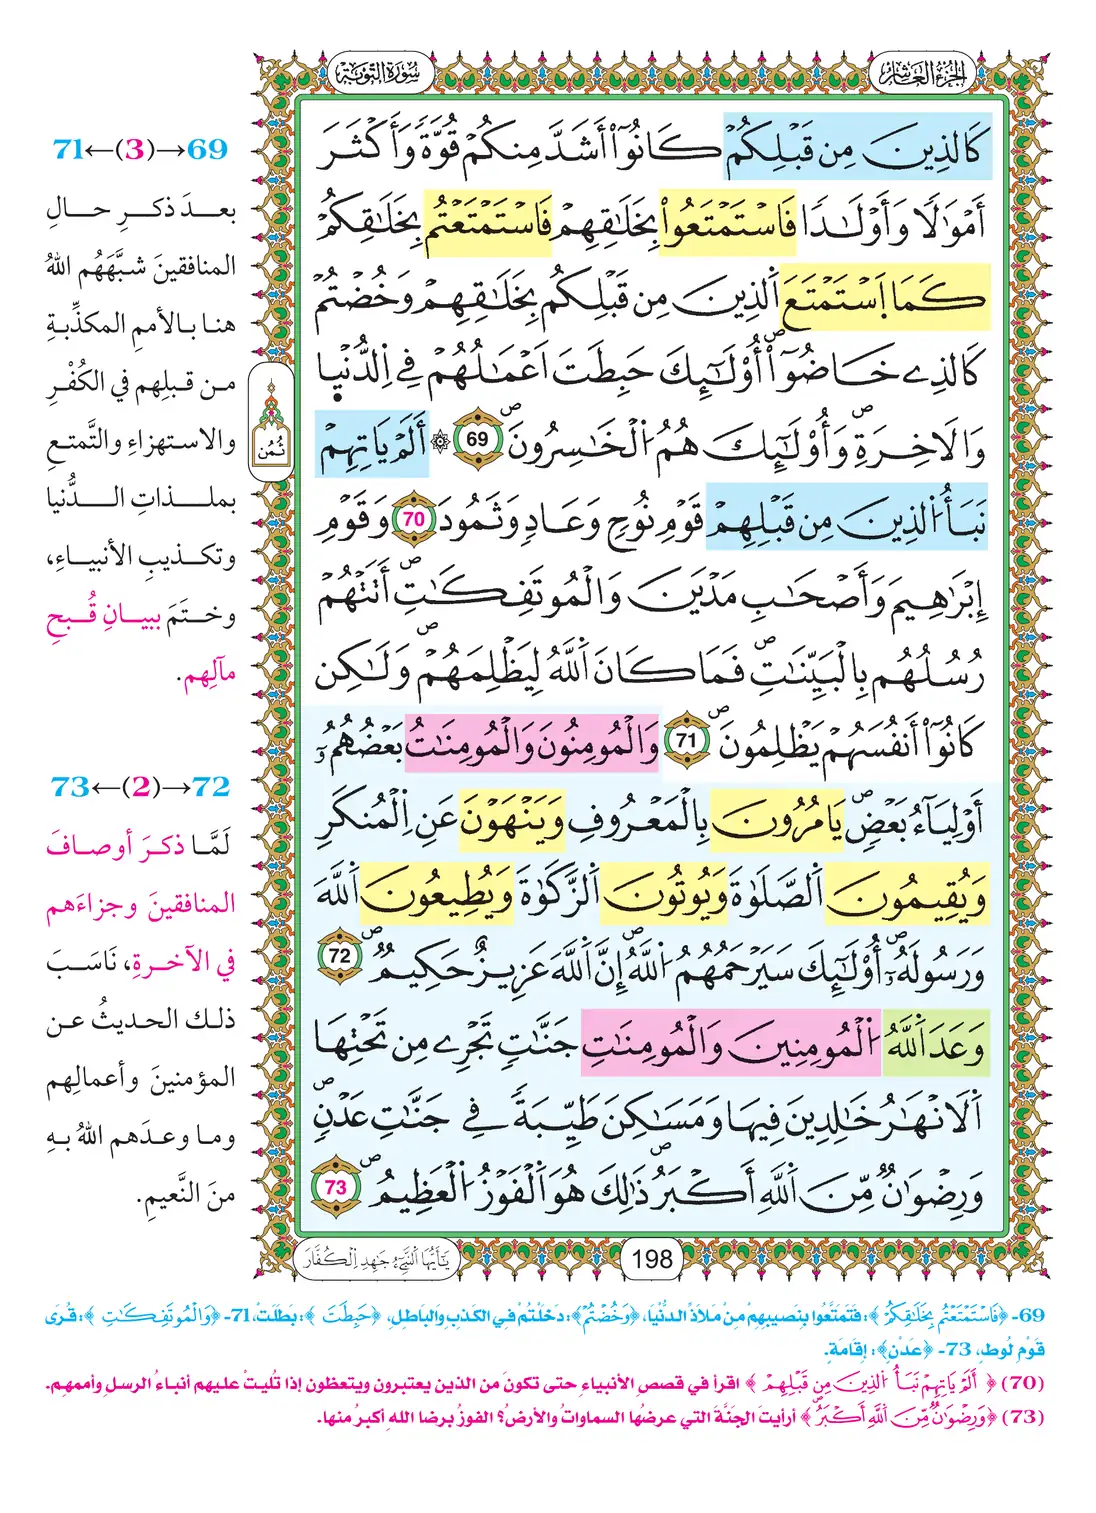 الجزء العاشر
سورة التوبة
كَالذِينَ مِن قَبْلِكُمْ كَانُوٓاْ أَشَدَّ مِنكُمْ قُوَّةٗ وَأَكْثَرَ
أَمْوَٰلٗا وَأَوْلَٰدٗا فَاسْتَمْتَعُواْ بِخَلَٰقِهِمْ فَاسْتَمْتَعْتُم بِخَلَٰقِكُمْ
كَمَا اَسْتَمْتَعَ اَلذِينَ مِن قَبْلِكُم بِخَلَٰقِهِمْ وَخُضْتُمْ
كَالذِے خَاضُوٓاْ أُوْلَٰٓئِكَ حَبِطَتَ اَعْمَٰلُهُمْ فِے اِلدُّنْيٜا
وَالَاخِرَةِ وَأُوْلَٰٓئِكَ هُمُ اُلْخَٰسِرُونَ 69 ۞ أَلَمْ يَاتِهِمْ
نَبَأُ اُلذِينَ مِن قَبْلِهِمْ قَوْمِ نُوحٖ وَعَادٖ وَثَمُودَ 70 وَقَوْمِ
إِبْرَٰهِيمَ وَأَصْحَٰبِ مَدْيَنَ وَالْمُوتَفِكَٰتِ أَتَتْهُمْ
رُسُلُهُم بِالْبَيِّنَٰتِ فَمَا كَانَ اَللَّهُ لِيَظْلِمَهُمْ وَلَٰكِن
كَانُوٓاْ أَنفُسَهُمْ يَظْلِمُونَ 71 وَالْمُومِنُونَ وَالْمُومِنَٰتُ بَعْضُهُمُۥٓ
أَوْلِيَآءُ بَعْضٖ يَامُرُونَ بِالْمَعْرُوفِ وَيَنْهَوْنَ عَنِ اِلْمُنكَرِ
وَيُقِيمُونَ اَلصَّلَوٰةَ وَيُوتُونَ اَلزَّكَوٰةَ وَيُطِيعُونَ اَللَّهَ
وَرَسُولَهُۥٓ أُوْلَٰٓئِكَ سَيَرْحَمُهُمُ اُللَّهُ إِنَّ اَللَّهَ عَزِيزٌ حَكِيمٞ 72
وَعَدَ اَللَّهُ اُلْمُومِنِينَ وَالْمُومِنَٰتِ جَنَّٰتٖ تَجْرِے مِن تَحْتِهَا
اَلَانْهَٰرُ خَٰلِدِينَ فِيهَا وَمَسَٰكِنَ طَيِّبَةٗ فِے جَنَّٰتِ عَدْنٖ
وَرِضْوَٰنٞ مِّنَ اَللَّهِ أَكْبَرُ ذَٰلِكَ هُوَ اَلْفَوْزُ اُلْعَظِيمُ 73
ثُمُن
يَٰٓأَيُّهَا اَلنَّبِےٓءُ جَٰهِدِ اِلْكُفَّارَ
198
69→(3)←71
بعدَ ذكرِ حالِ
المنافقينَ شبَّهَهُم اللهُ
هنا بالأممِ المكذِّبةِ
من قبلِهم في الكُفْرِ
والاستهزاءِ والتَّمتعِ
بملذاتِ الدُّنيا
وتكذيبِ الأنبياءِ،
وختَمَ ببيانِ قُبحِ
مآلِهم.
72→(2)←73
لَمَّا ذكرَ أوصافَ
المنافقينَ وجزاءَهم
في الآخرةِ، نَاسَبَ
ذلك الحديثُ عن
المؤمنينَ وأعمالِهم
وما وعدَهم اللهُ بهِ
منَ النَّعيمِ.
69- ﴿فَاسْتَمْتَعْتُم بِخَلَٰقِكُمْ﴾: فَتَمَتَّعُوا بِنَصِيبِهِمْ مِنْ مَلَاذِّ الدُّنْيَا، ﴿وَخُضْتُمْ﴾: دَخَلْتُمْ فِي الكَذِبِ وَالبَاطِلِ، ﴿حَبِطَتَ﴾: بَطَلَتْ، 71- ﴿وَالْمُوتَفِكَٰتِ﴾: قُرَى
قَوْمِ لُوطٍ، 73- ﴿عَدْنٖ﴾: إِقَامَةٍ.
(70) ﴿أَلَمْ يَاتِهِمْ نَبَأُ اُلذِينَ مِن قَبْلِهِمْ﴾ اقرأ في قصص الأنبياءِ حتى تكونَ من الذين يعتبرون ويتعظون إذا تُليتْ عليهم أنباءُ الرسلِ وأممهِم.
(73) ﴿وَرِضْوَٰنٞ مِّنَ اَللَّهِ أَكْبَرُ﴾ أرأيتَ الجَنَّةَ التي عرضُها السماواتُ والأرضُ؟ الفوزُ برضا اللهِ أكبرُ منها.